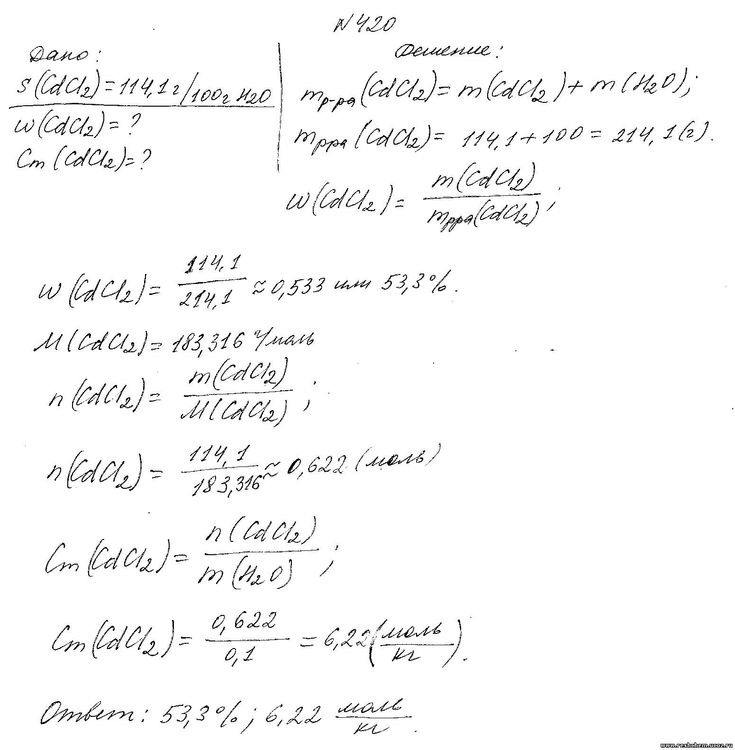 N420
Дано:
S(CdCl2)=114,1г/100г H2O
w(CdCl2)=?
Cm(CdCl2)=?
Решение:
mр-ра(CdCl2)=m(CdCl2)+m(H2O);
mрра(CdCl2)= 114,1+100=214,1(г).
w(CdCl2)= m(CdCl2)/mрра(CdCl2);
w(CdCl2)= 114,1/214,1 ≈0,533 или 53,3%.
M(CdCl2)=183,316 г/моль
n(CdCl2)= m(CdCl2)/M(CdCl2);
n(CdCl2)= 114,1/183,316 ≈0,622 (моль)
Cm(CdCl2)= n(CdCl2)/m(H2O);
Cm(CdCl2)= 0,622/0,1 =6,22(моль/кг).
Ответ: 53,3%; 6,22 моль/кг.
www.reshuhem.ucoz.ru